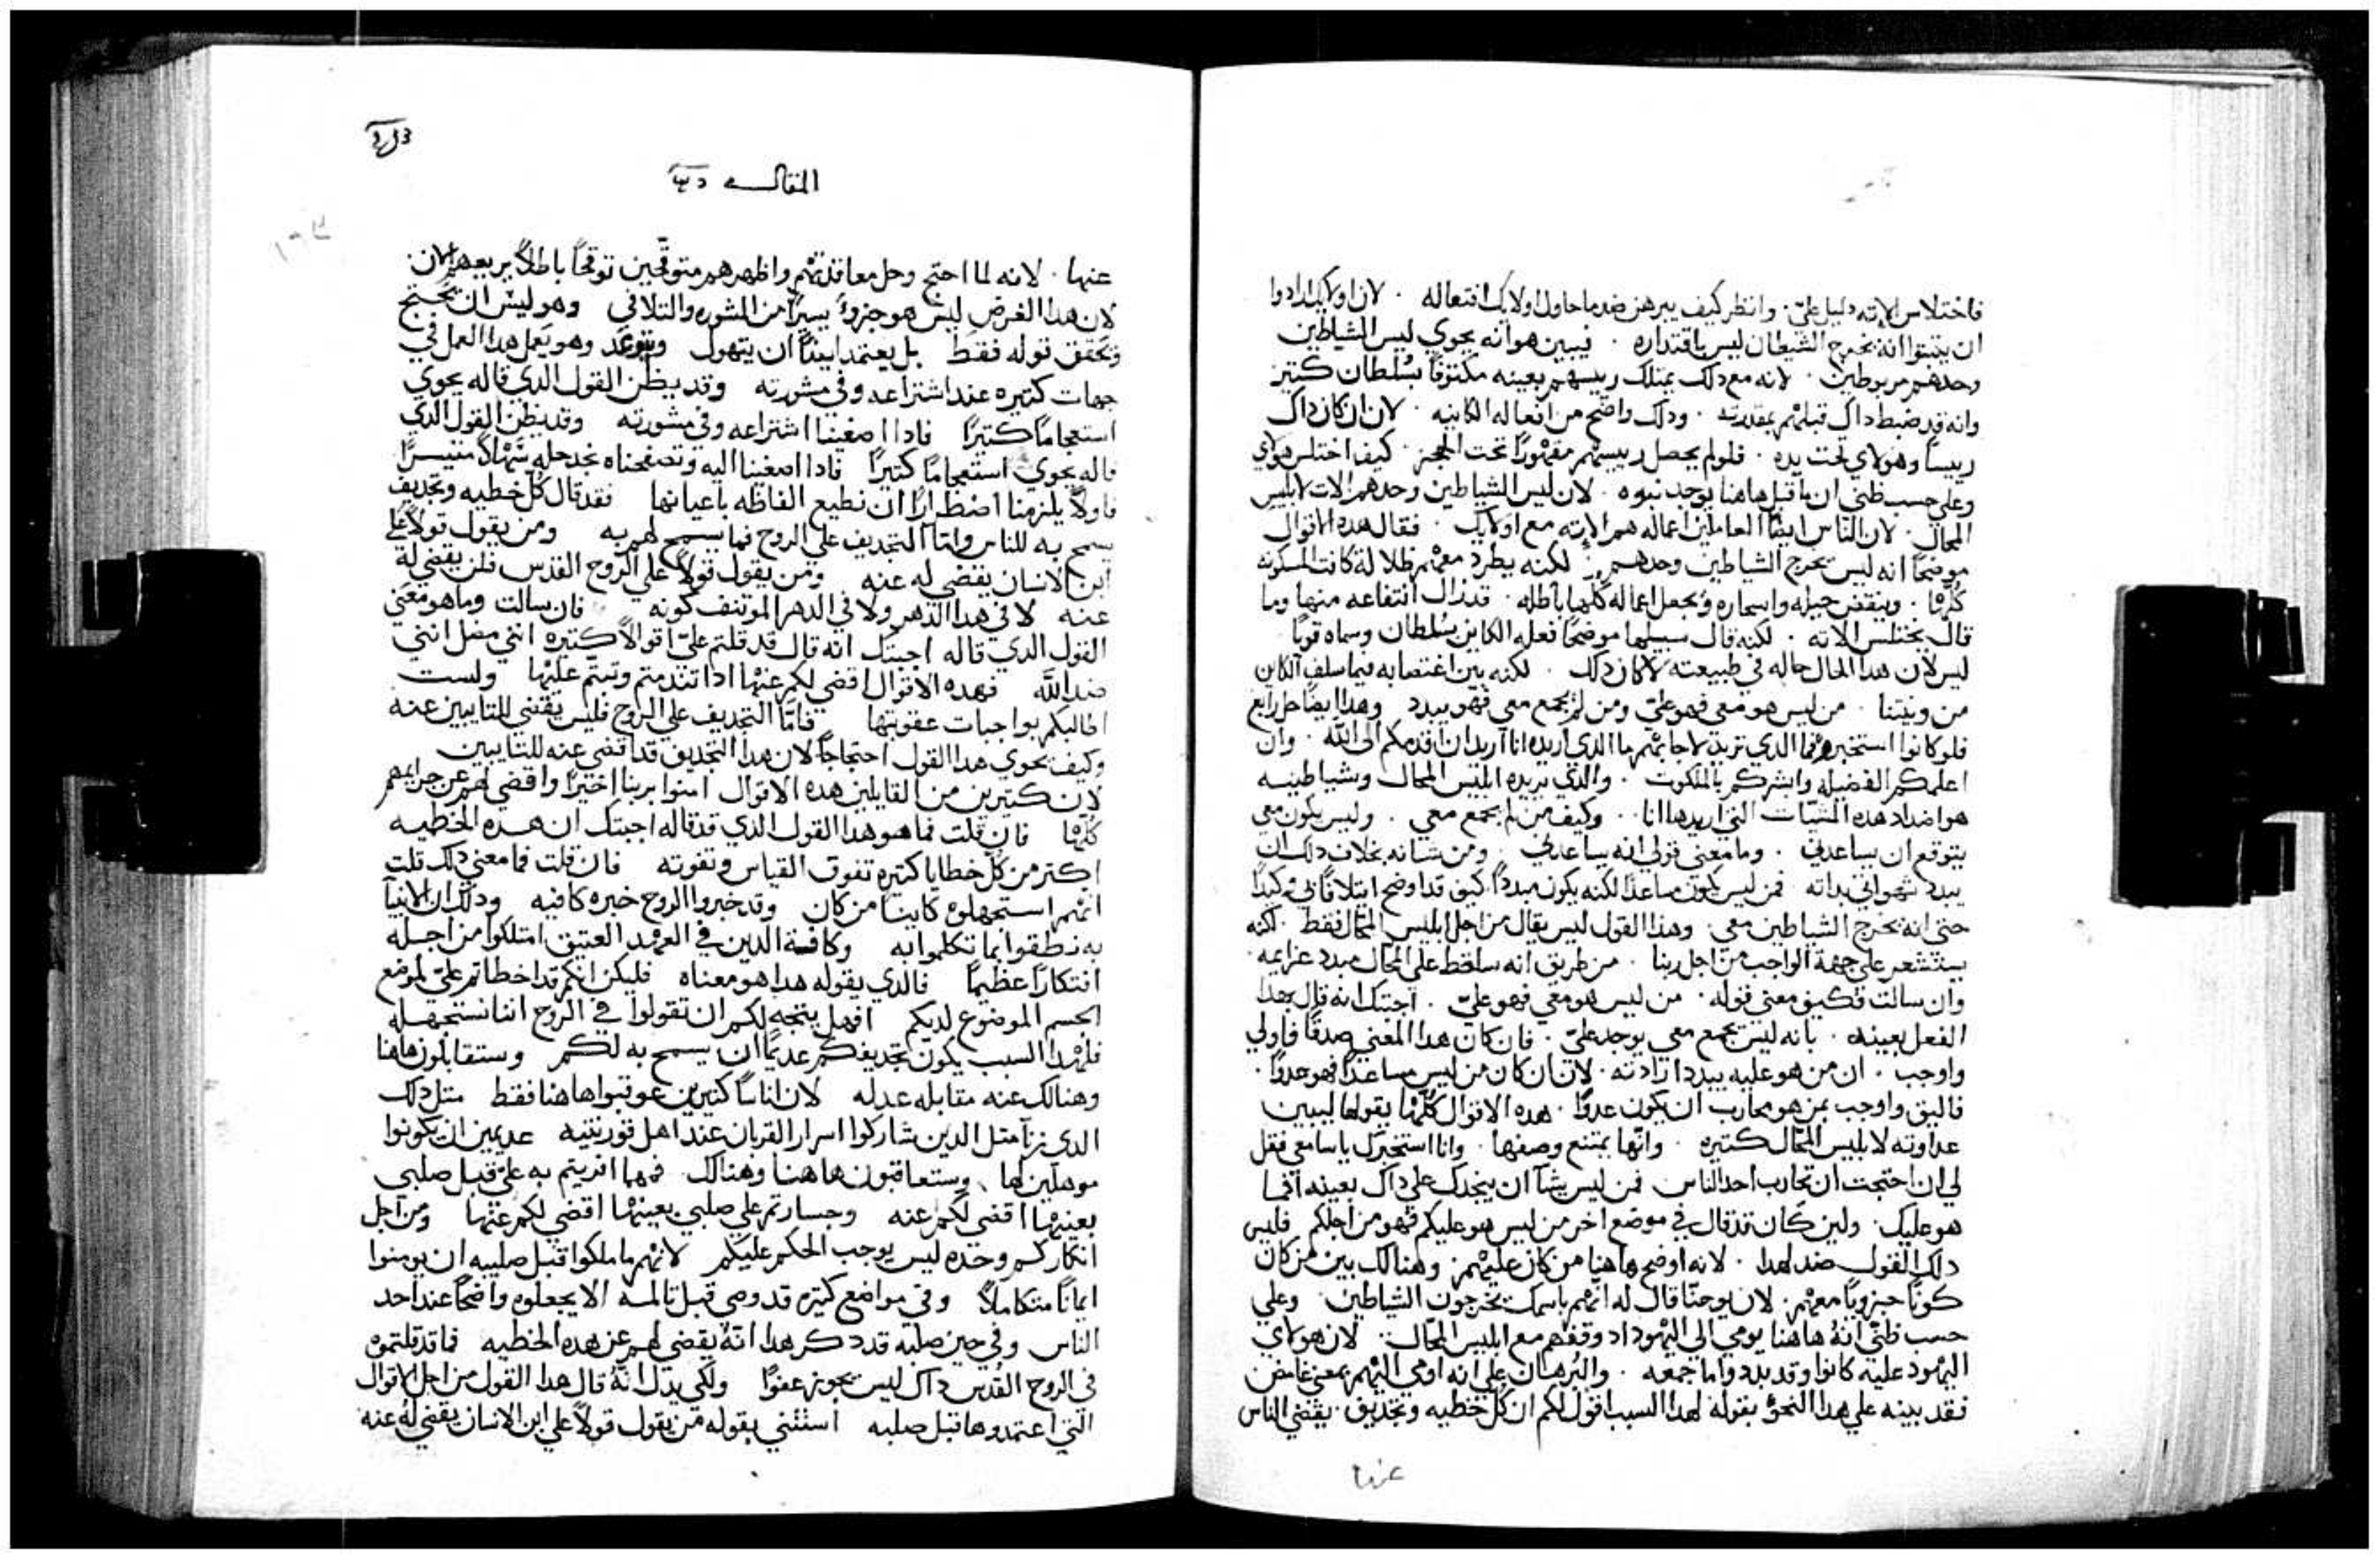 فاختلاس الاته دليل علىّ . وانظر كيف يبرهن ضد ما حاول اولايك افتعاله . لان اولايك ارادوا
ان يثبتوا انه يخرج الشيطان ليس باقتداره . فيبين هو انه يحوي ليس الشياطين
وحدهم مربوطين . لانه مع ذلك يمتلك رييسهم بعينه مكتوفًا بسُلطان كتير
وانه قد ضبط داك قبلهم بمقدرته . ودلك واضح من افعاله الكاينه . لان ان كان داك
رييسًا وهولاي تحت يده . فلو لم يحصل رييسهم مقهورًا تحت الحجز . كيف اختلس هولاي
وعلى حسب ظني ان ما قيل هاهنا يوجد نبوه . لان ليس الشياطين وحدهم الات لابليس
المحال . لان الناس ايضًا العاملين اعماله هم الاته مع اولايك . فقال هده الاقوال
موضحًا انه ليس يخرج الشياطين وحدهم . لكنه يطرد معهم ظلاله كانت المسكونه
كُلها . وينقض حيله واسحاره ويجعل اعماله كلها باطله . قد زال انتفاعه منها وما
قال يختلس الاته . لكنه قال سيسلبها موضحًا فعله الكاين بسُلطان وسماه قويًا
ليس لان هدا المحال حاله في طبيعته لا كان دلك . لكنه بين اغتصابه فيما سلف الكاين
من ونيتنا . من ليس هو معي فهو علىّ ومن لم يجمع معي فهو يبدد وهدا ايضًا حل رابع
فلو كانوا استخبروه فما الدي تريد لاجابهم ما الدي اريده انا اريد ان اقدمكم الى الله . وان
اعلمكم الفضيله وابشركم بالملكوت . والدي يريده ابليس المحال وشياطينه
هو اضداد هده المشيات التي اريدها انا . وكيف من لم يجمع معي . وليس يكون معي
يتوقع ان يساعدني . وما معنى قولي انه يساعدني . ومن شانه بخلاف دلك ان
يبدد شهواني بداته فمن ليس يكون مساعدًا لكنه يكون مبددًا كيف قد اوضح ايتلافًا بي وكيدًا
حتى انه يخرج الشياطين معي . وهدا القول ليس يقال من اجل ابليس المحال فقط . لكنه
يستشعر على جهة الواجب من اجل ربنا . من طريق انه ساقط على المحال مبدد عزايمه .
وان سالت فكيف معنى قوله . من ليس هو معي فهو علىّ . اجبتك انه قال بهدا
الفعل بعينه . بانه ليس يجمع معي يوجد علىّ . فان كان هدا المعني صدقًا فاولي
واوجب . ان من هو عليه يبدد ارادته . لان ان كان من ليس مساعدًا فهو عدوًا .
فاليق واوجب بمن هو محارب ان يكون عدوًا . هده الاقوال كُلها يقولها ليبين
عداوته لابليس المحال كتيره . وانها يمتنع وصفها . وانا استخبرك يا سامعي فقل
لي ان احتجت ان تحارب احد الناس فمن ليس يشا ان ينجدك على داك بعينه افما
هو عليك . ولين كان قد قال في موضع اخر من ليس هو عليكم فهو من اجلكم فليس
دلك القول ضد لهدا . لانه اوضح هاهنا من كان عليهم وهنالك بين من كان
كونًا جزويًا معهم . لان يوحنّا قال له انهم باسمك يخرجون الشياطين . وعلى
حسب ظني انه هاهنا يومي الى اليهود اد وقفهم مع ابليس المحال . لان هولاي
اليهود عليه كانوا وقد بددوا ما جمعه . والبُرهان على انه اومى اليهم بمعنى غامض
فقد بينه على هدا النحو بقوله لهدا السبب اقول لكم ان كل خطيه وتجديف . يقضي للناس
عنها
المقاله
عنها . لانه لما احتج وحل معاقدتهم واظهرهم متوقحين توقحًا باطلًا
لان هدا الغرض ليس هو جزوًا يسيرًا من المشوره والتلافي وهو ليس ان يحتج
وتحقق قوله فقط بل يعتمد ايضًا ان يتهول ويتوعد وهو يعمل هدا العمل في
جهات كتيره عند اشتراعه وفي مشورته وقد يظن القول الدي قاله يحوي
استعجامًا كتيرًا فادا اصغينا اشتراعه وفي مشورته وقد يظن القول الدي
قاله يحوي استعجامًا كتيرًا فادا اصغينا اليه وتصفحناه نجد حله سهلًا متيسرًا
فاولًا يلزمنا اضطرارًا ان نطيع الفاظه باعيانها فقد قال كل خطيه وتجديف
يسمح به للناس واما التجديف على الروح فما يسمح لهم به ومن يقول قولًا على
ابن الانسان يقضى له عنه ومن يقول قولًا على الروح القدس فلن يقضى له
عنه لا في هدا الدهر ولا في الدهر الموتنف كونه فان سالت وما هو معنى
القول الدي قاله اجبتك انه قال قد قلتم علىّ اقوالًا كتيره انني مضل انني
ضد الله فهده الاقوال اقضي لكم عنها ادا تندمتم وتبتم عليها ولست
اطالبكم بواجبات عقوبتها فامّا التجديف على الروح فليس يقضي للتايبين عنه
وكيف يحوي هدا القول احتجاجًا لان هدا التجديف قد اقضي عنه للتايبين
لان كتيرين من القايلين هده الاقوال امنوا بربنا اخيرًا واقضي لهم عن جرايمهم
كلها فان قلت فما هو هدا القول الدي قد قاله اجبتك ان هده الخطيه
اكتر من كل خطايا كتيره تفوق القياس وتفوته فان قلت فما معني دلك قلت
انهم استجهلوه كاينًا من كان وقد خبروا الروح خبره كافيه ودلك ان الانبيا
به نطقوا بما تكلموا به وكافة الدين في العهد العتيق امتلكوا من اجله
افتكارًا عظيمًا فالدي يقوله هدا هو معناه فليكن انكم قد اخطاتم علىّ لموضع
الجسم الموضوع لديكم افهل يتجه لكم ان تقولوا في الروح اننا نستجهله
فلهدا السبب يكون تجديفكم عديمًا ان يسمح به لكم وستقابلون هاهنا
وهنالك عنه مقابله عدله لان اناسًا كتيرين عوقبوا هاهنا فقط متل دلك
الدي زنا متل الدين شاركوا اسرار القربان عند اهل قورنتيه عديمين ان يكونوا
موهلين لها . وستعاقبون هاهنا وهنالك فمهما افريتم به علىّ قبل صلبي
بعينها اقضي لكم عنه وجسارتكم على صلبي بعينها اقضي لكم عنها ومن اجل
انكاركم وحده ليس يوجب الحكم عليكم لانهم ما ملكوا قبل صليبه ان يومنوا
ايمانًا متكاملًا وفي مواضع كتيره قد وصى قبل تالمه الا يجعلوه واضحًا عند احد
الناس وفي حين صلبه قد دكر هدا انه يقضي لهم عن هده الخطيه فما قد قلتموه
في الروح القُدس داك ليس يحوز عفوًا ولكي يدل انه قال هدا القول من اجل الاقوال
التي اعتمدوها قبل صلبه استثني بقوله من يقول قولًا على ابن الانسان يقضي له عنه